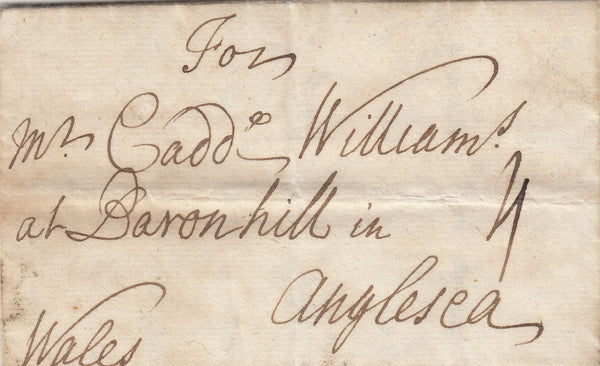 For
Mr Cadde Williams
at Baronhill in 4
Anglesea
Wales